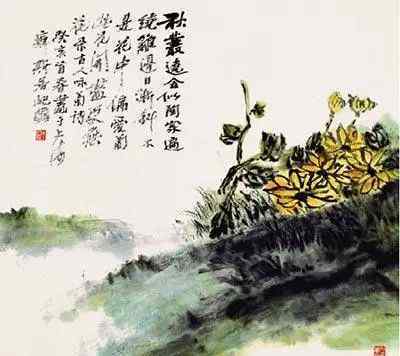 秋叢遶舍似陶家遍
繞籬邊日漸斜不
是花中偏愛菊
此花開盡更無
花录古人咏菊詩
癸亥首春畫于上海